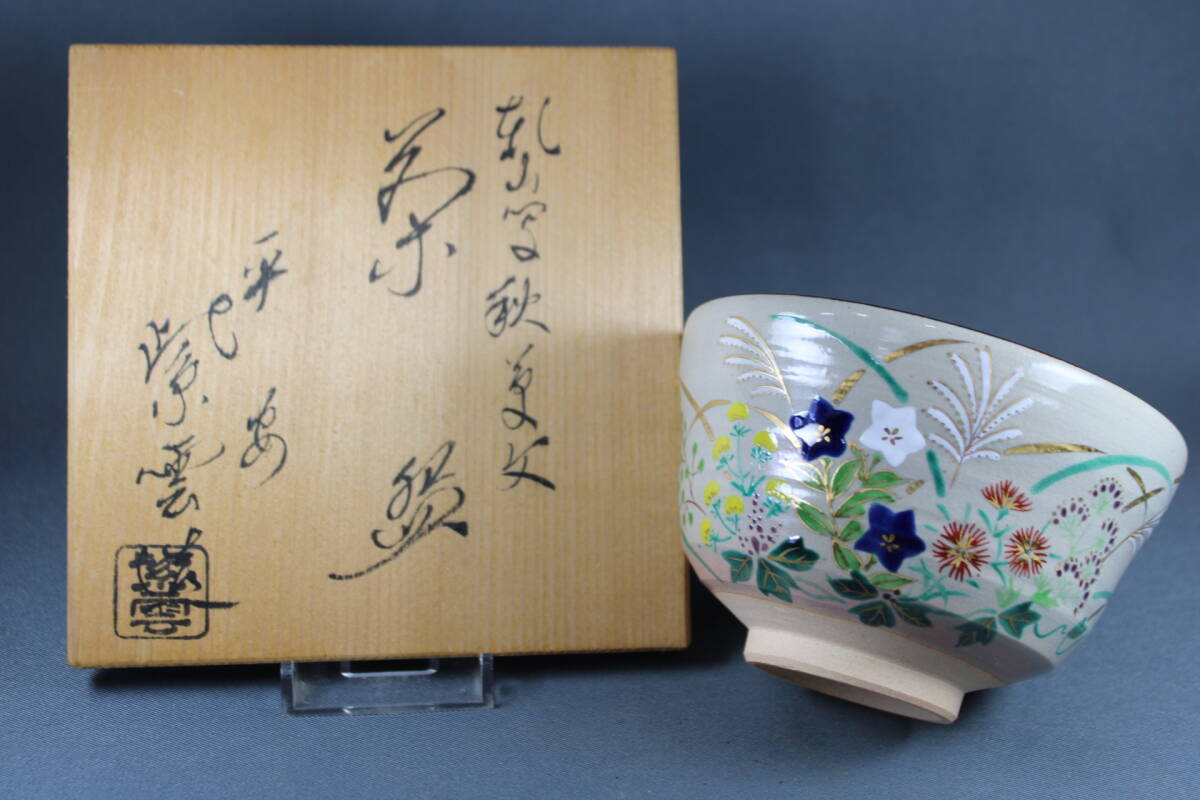 乾山写秋草文
茶盌
平安
紫雲
紫雲